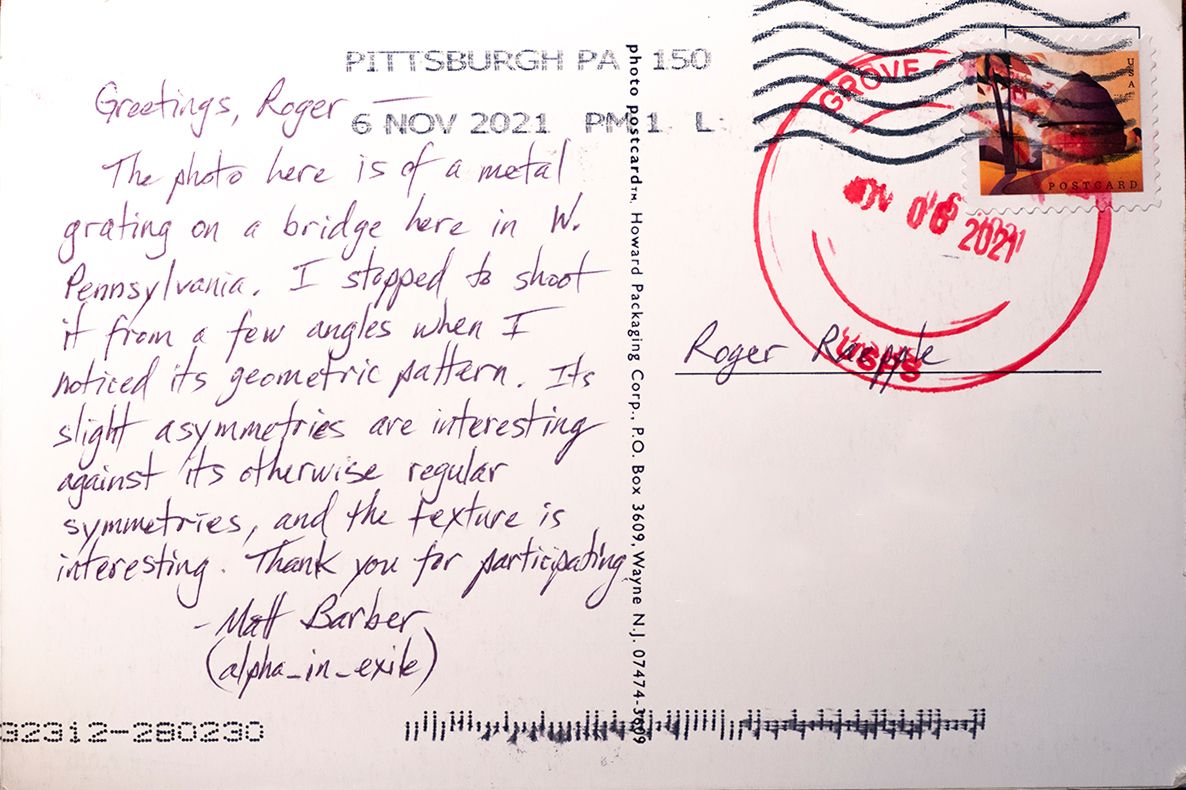 Greetings, Roger —
The photo here is of a metal
grating on a bridge here in W.
Pennsylvania. I stopped to shoot
it from a few angles when I
noticed its geometric pattern. Its
slight asymmetries are interesting
against its otherwise regular
symmetries, and the texture is
interesting. Thank you for participating
- Matt Barber
(alpha_in_exile)
PITTSBURGH PA 150
6 NOV 2021 PM 1 L
photo postcard™, Howard Packaging Corp., P.O. Box 3609, Wayne N.J. 07474-3609
GROVE
2021
USPS
USA
POSTCARD
Roger Raepple
32312-280230